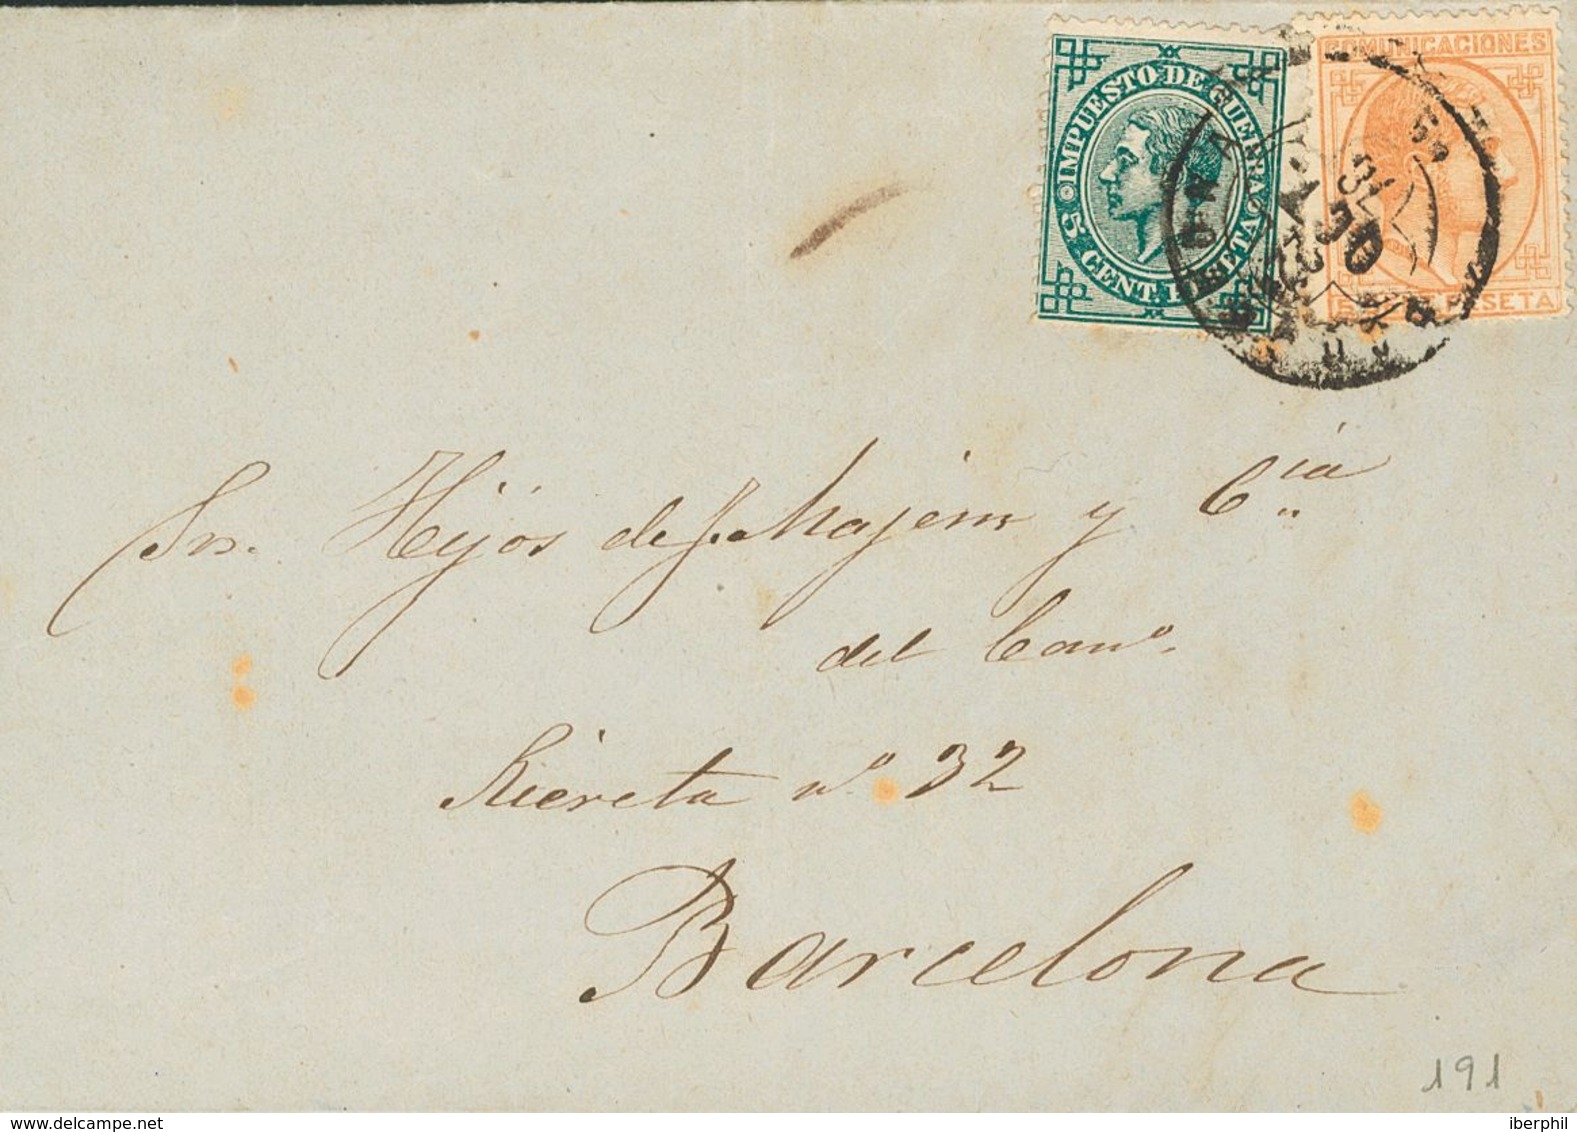 IMPUESTO DE GUERRA
5 CENT. PESETA
COMUNICACIONES
PESETA
Srs. Hijos de J. Majem y Cía
del Comº.
Riereta nº 32
Barcelona
191
iberphil